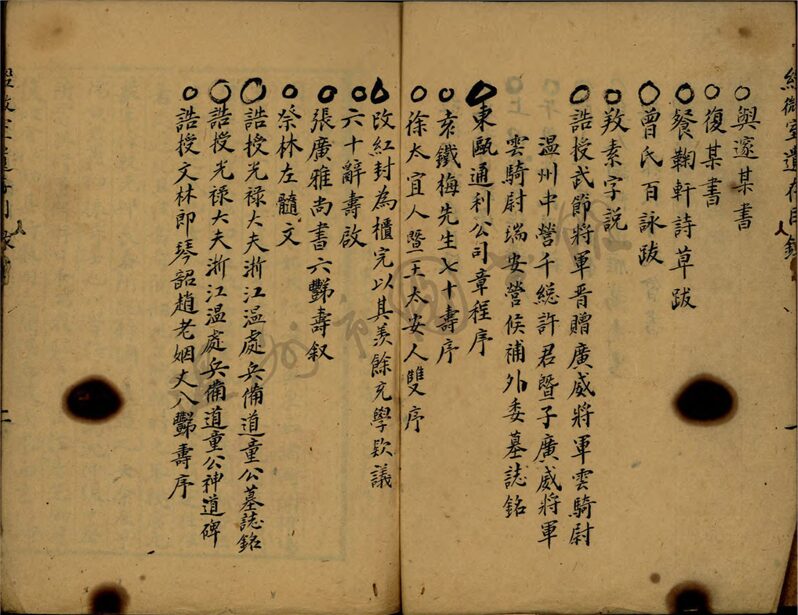 與邃某書
復某書
餐鞠軒詩草跋
曾氏百詠跋
敎素字說
誥授武節將軍晋贈廣威將軍雲騎尉
溫州中營千総許君暨子廣威將軍
雲騎尉瑞安營候補外委墓誌銘
東甌通利公司章程序
袁鐵梅先生七十壽序
徐太宜人暨王太安人雙序
改紅封為櫃完以其羨餘充學欵議
六十辭壽啟
張廣雅尚書六豑壽叙
祭林左髓文
誥授光祿大夫浙江溫處兵備道童公墓誌銘
誥授光祿大夫浙江溫處兵備道童公神道碑
誥授文林郎琴韶趙老姻丈八豑壽序
二